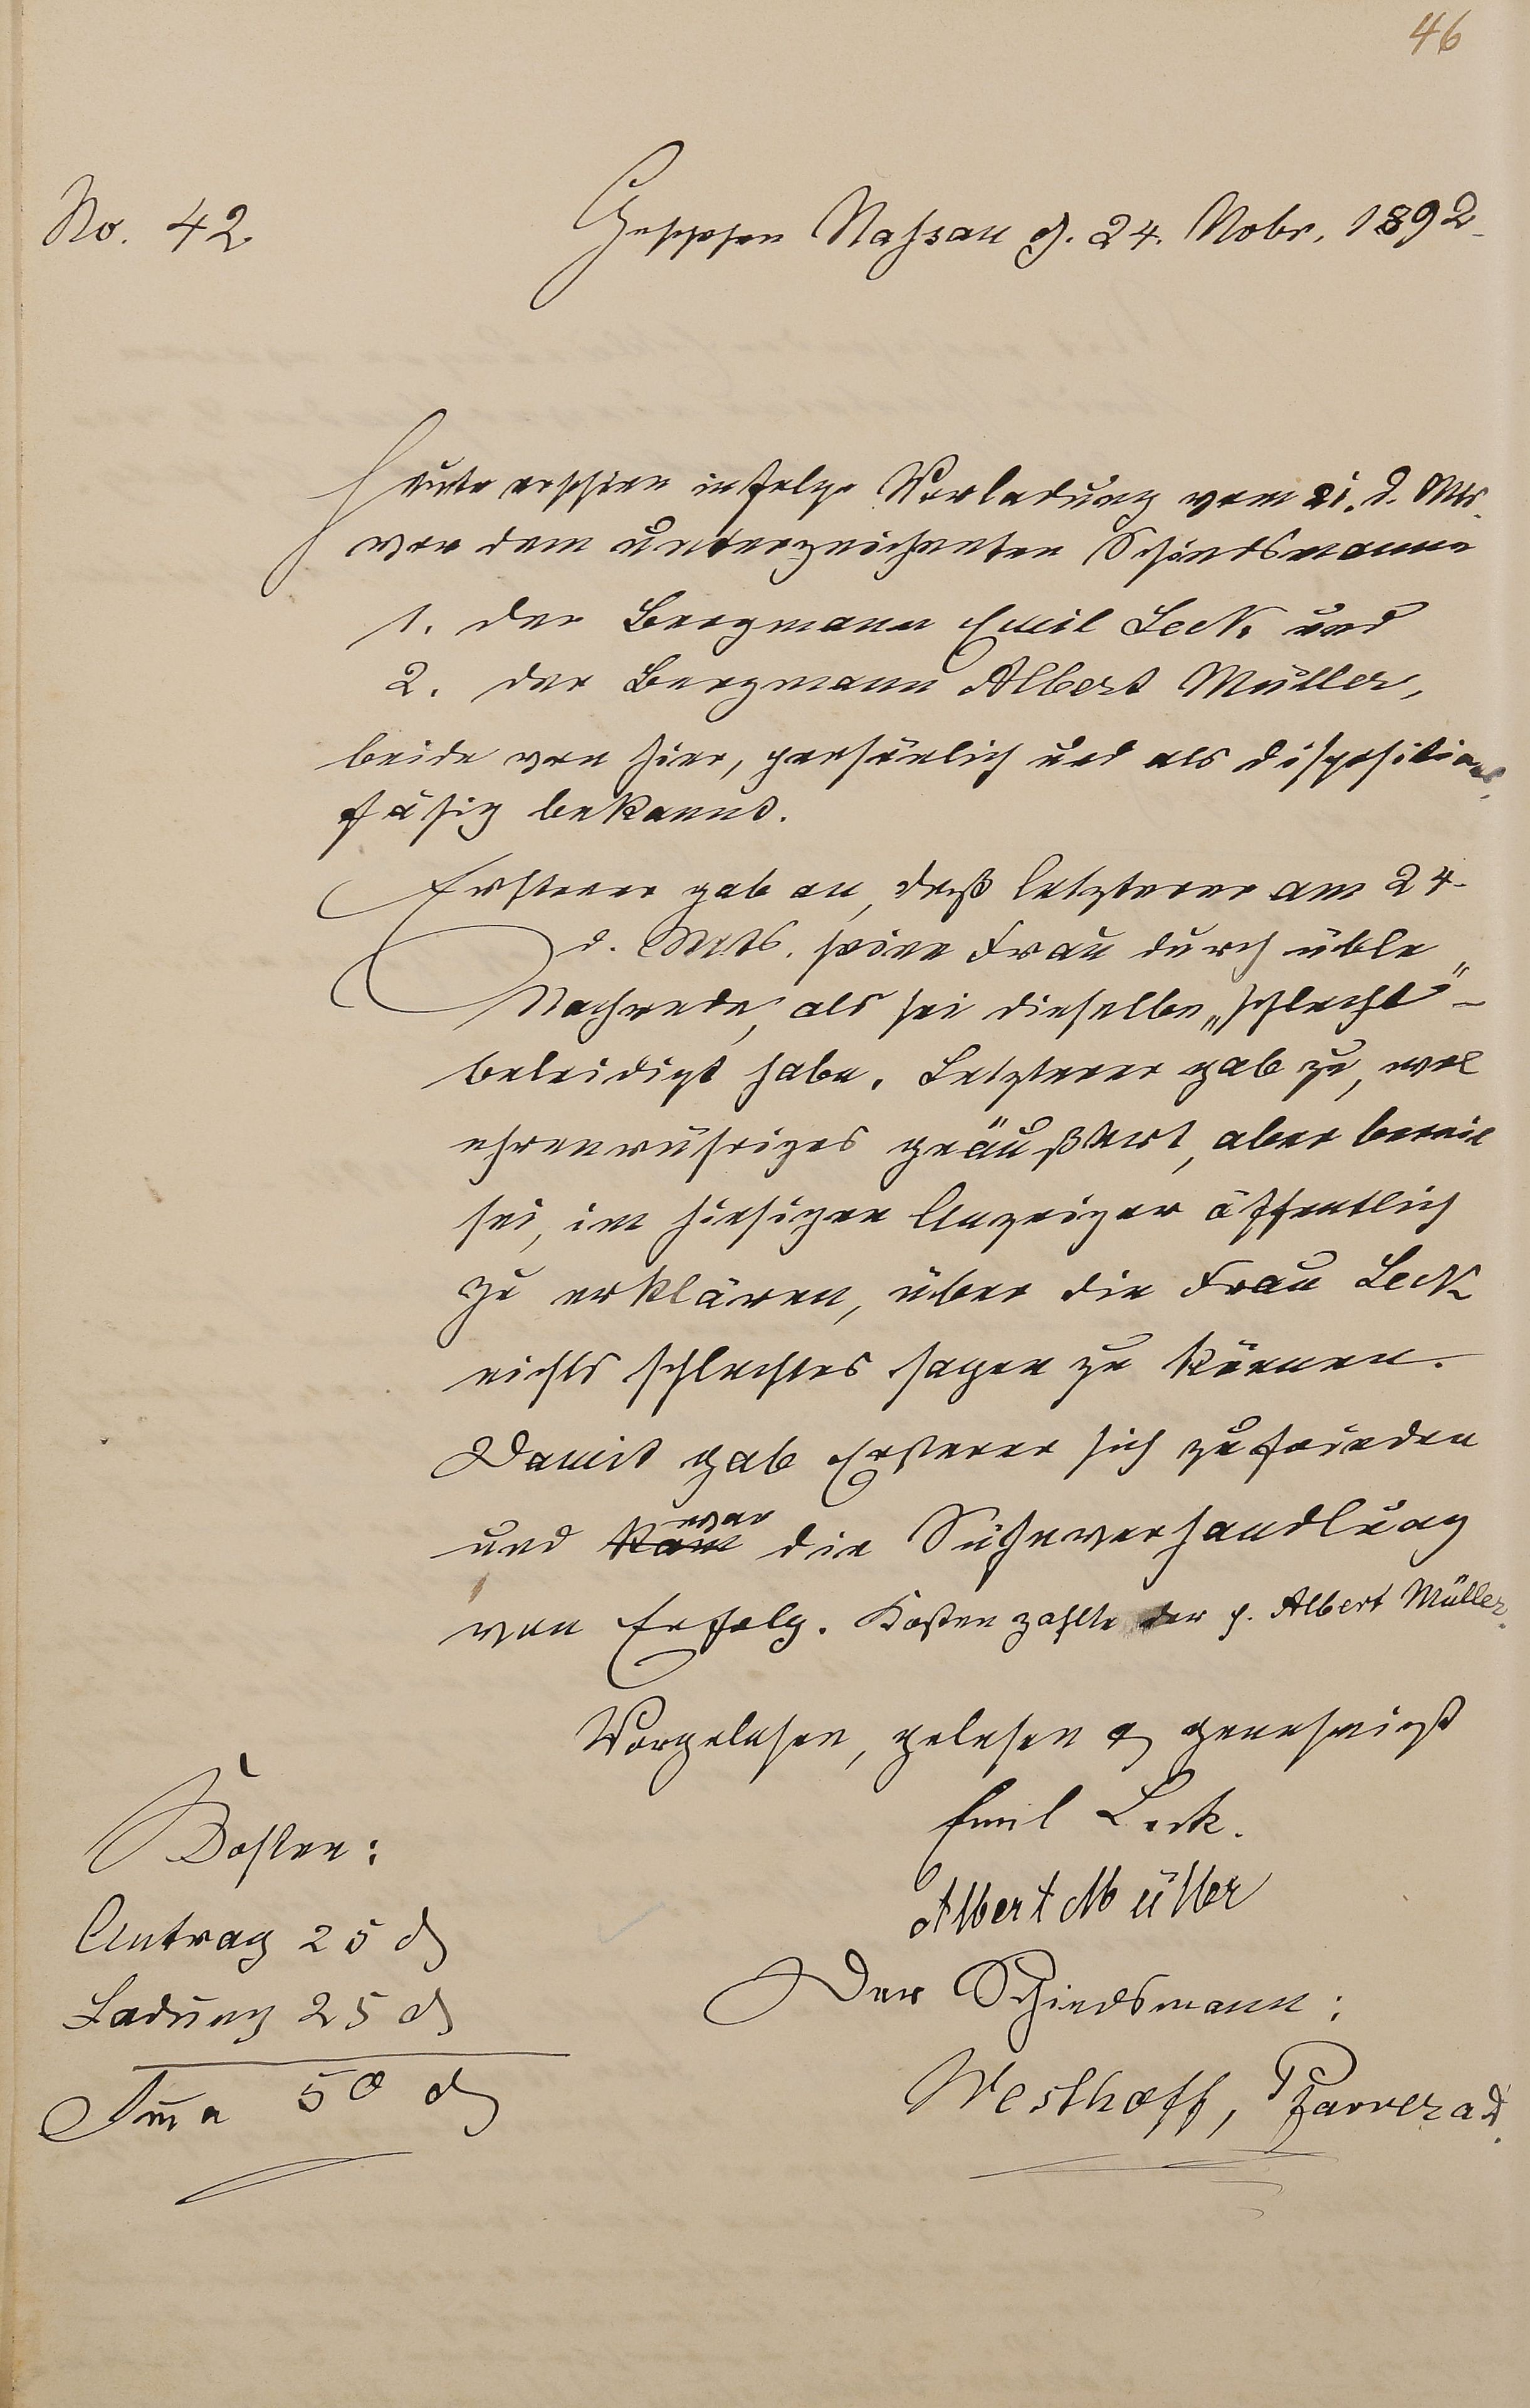 46
No. 42
Geschehen Nassau d. 24. Nobr. 1892.
Heute erschien infolge Vorladung vom 21. d. Mts.
vor dem unterzeichneten Schiedsmanne
1. der Bergmann Emil Leck und
2. der Bergmann Albert Müller,
beide von hier, persönlich und als dispositions-
fähig bekannt.
Ersterer gab an, daß letzterer am 24.
d. Mts. seine Frau durch üble
Nachrede, als sei dieselbe „schlecht" -
beleidigt habe. Letzterer gab zu, wol
ehrenrühriges geäußert, aber bereit
sei, im hiesigen Anzeiger öffentlich
zu erklären, über die Frau Leck
nichts schlechtes sagen zu können.
Damit gab Ersterer sich zufrieden
und kam war die Sühneverhandlung
von Erfolg. Kosten zahlte der p. Albert Müller.
Vorgelesen, gelesen & genehmigt
Emil Leck.
Albert Müller
Der Schiedsmann:
Westhoff, Pfarrer a.d.
Kosten:
Antrag 25 ₰
Ladung 25 ₰
Sm̄a 50 ₰